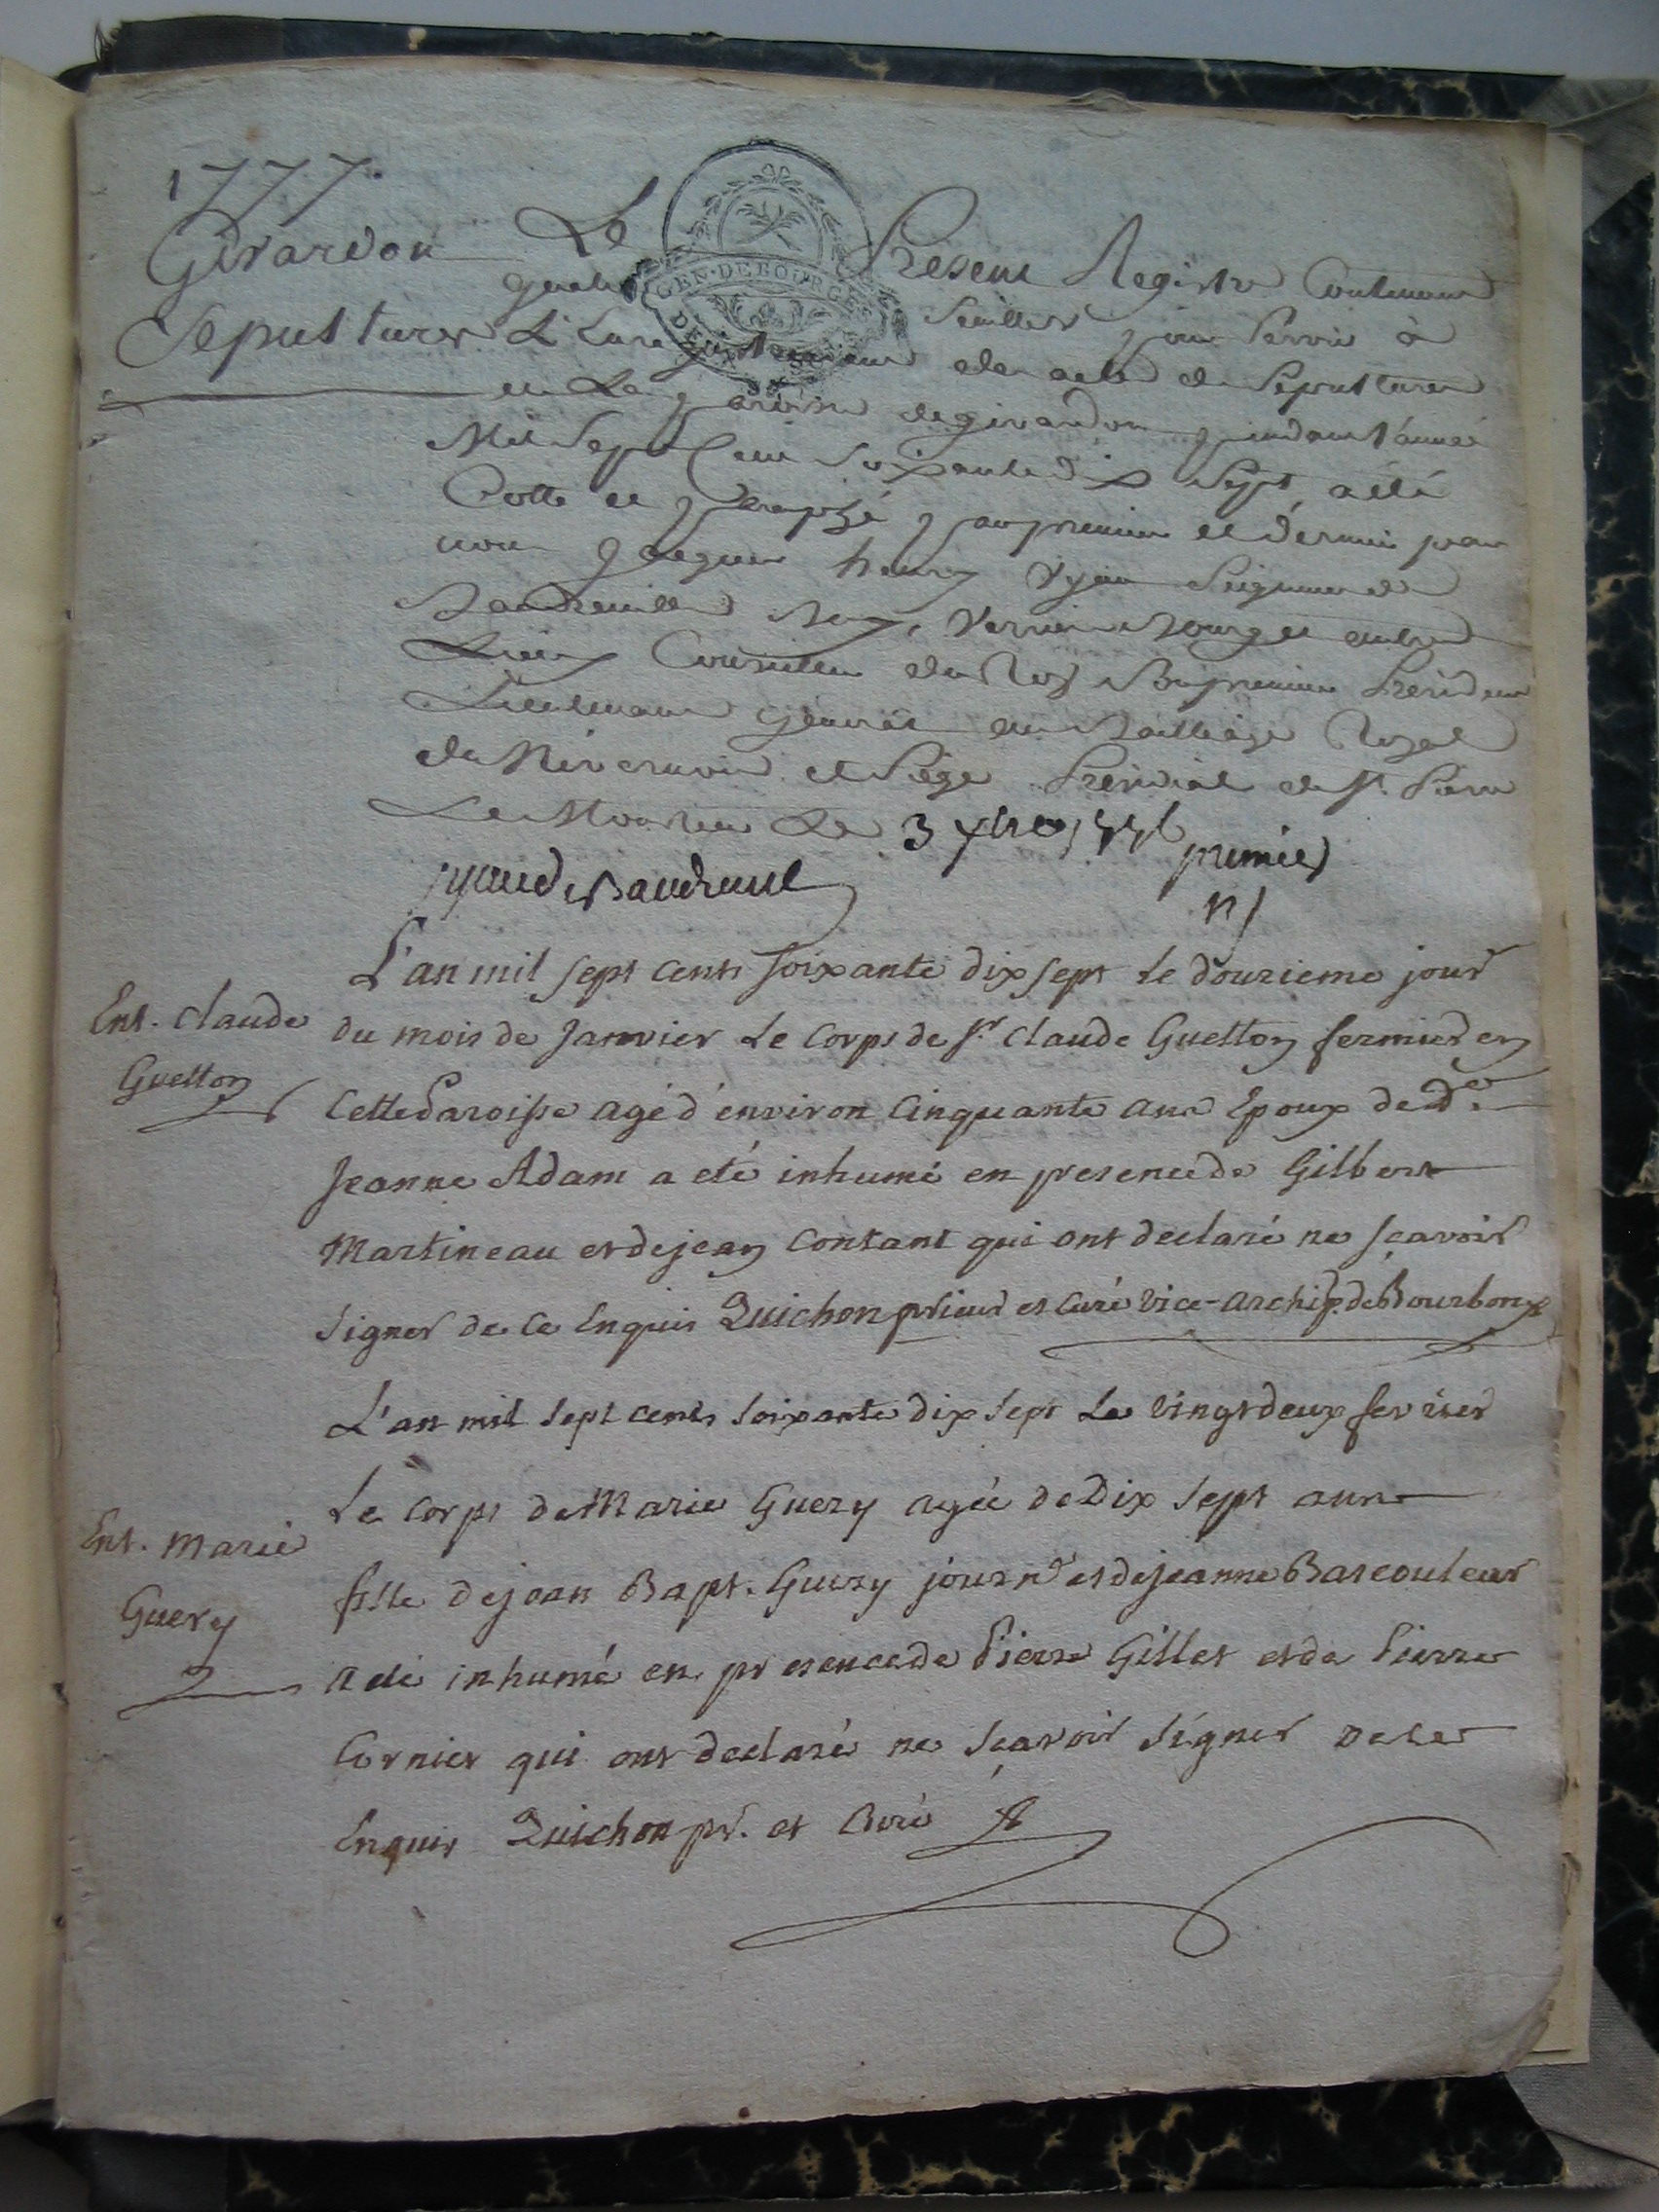 1777.
Girardon
Sepultures
GEN. DE BOURGES
Le Présent Registre Contenant
quatre feuillets pour servir à
L'enregistrement des actes de sepultures
de La paroisse de girardon pendant l'année
Mil Sept Cent soixante dix Sept, a été
Cotté et paraphé par premier et dernier par
nous Jacques henry
Seigneur de
autres
Lieux Conseiller du Roy Son premier President
Lieutenant général au Bailliage Royal
de Nivernois et Siège Presidial de St. Pierre
Le Moutier Le 3 1776
premier
Ent. Claude
Guetton
L'an mil sept cents soixante dix sept le douzieme jour
du mois de Janvier le Corps de Sr. Claude Guetton fermier en
cette Paroisse agé d'environ Cinquante ans Epoux de de.
Jeanne Adam a eté inhumé en presence de Gilbert
Martineau et de jean Contant qui ont declaré ne sçavoir
signer de ce Enquis Quichon prieur et Curé Vice-archip. de Bourbon
Ent. Marie
Guery
L'an mil sept cents soixante dix sept le vingt deux fevrier
Le Corps de Marie Guery agée de Dix sept ans
fille de jean Bapt. Guery journr et de jeanne Barcouleur
a eté inhumé en presence de Pierre Gillet et de Pierre
Cornier qui ont declaré ne sçavoir signer de ce
Enquis Quichon pr. et Curé